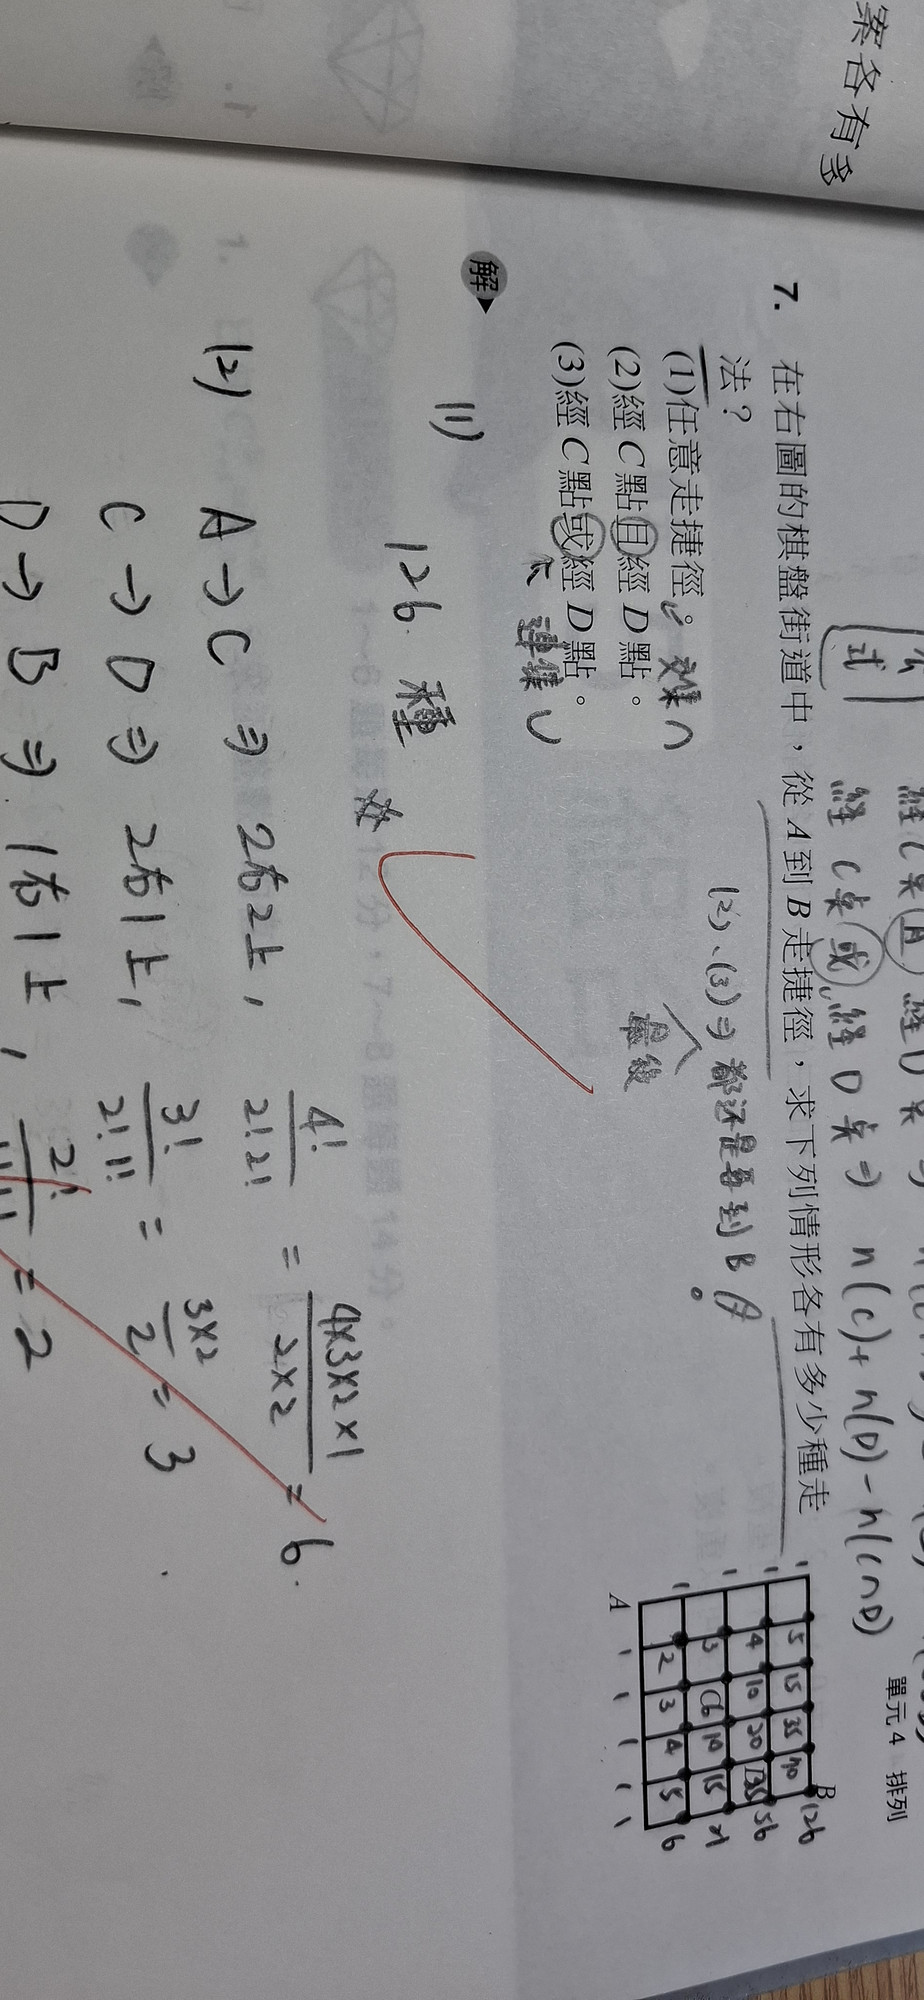 案各有多
單元4 排列
公式
經C点且經D点⇒
經C点或經D点⇒ n(C)+n(D)-n(C∩D)
7. 在右圖的棋盤街道中，從A到B走捷徑，求下列情形各有多少種走
法？
(2)、(3)⇒都還是要到B
最後
(1)任意走捷徑。
交集∩
(2)經C點且經D點。
(3)經C點或經D點。
連集∪
B
1 5 15 35 70 126
1 4 10 20 D35 56
1 3 C6 10 15 21
1 2 3 4 5 6
A 1 1 1 1 1
解
(1)
126 種 #
(2) A→C ⇒ 2右2上, 4!/2!2! = 4×3×2×1/2×2 = 6.
C→D ⇒ 2右1上, 3!/2!1! = 3×2/2 = 3
D→B ⇒ 1右1上, 2!/1!1! = 2